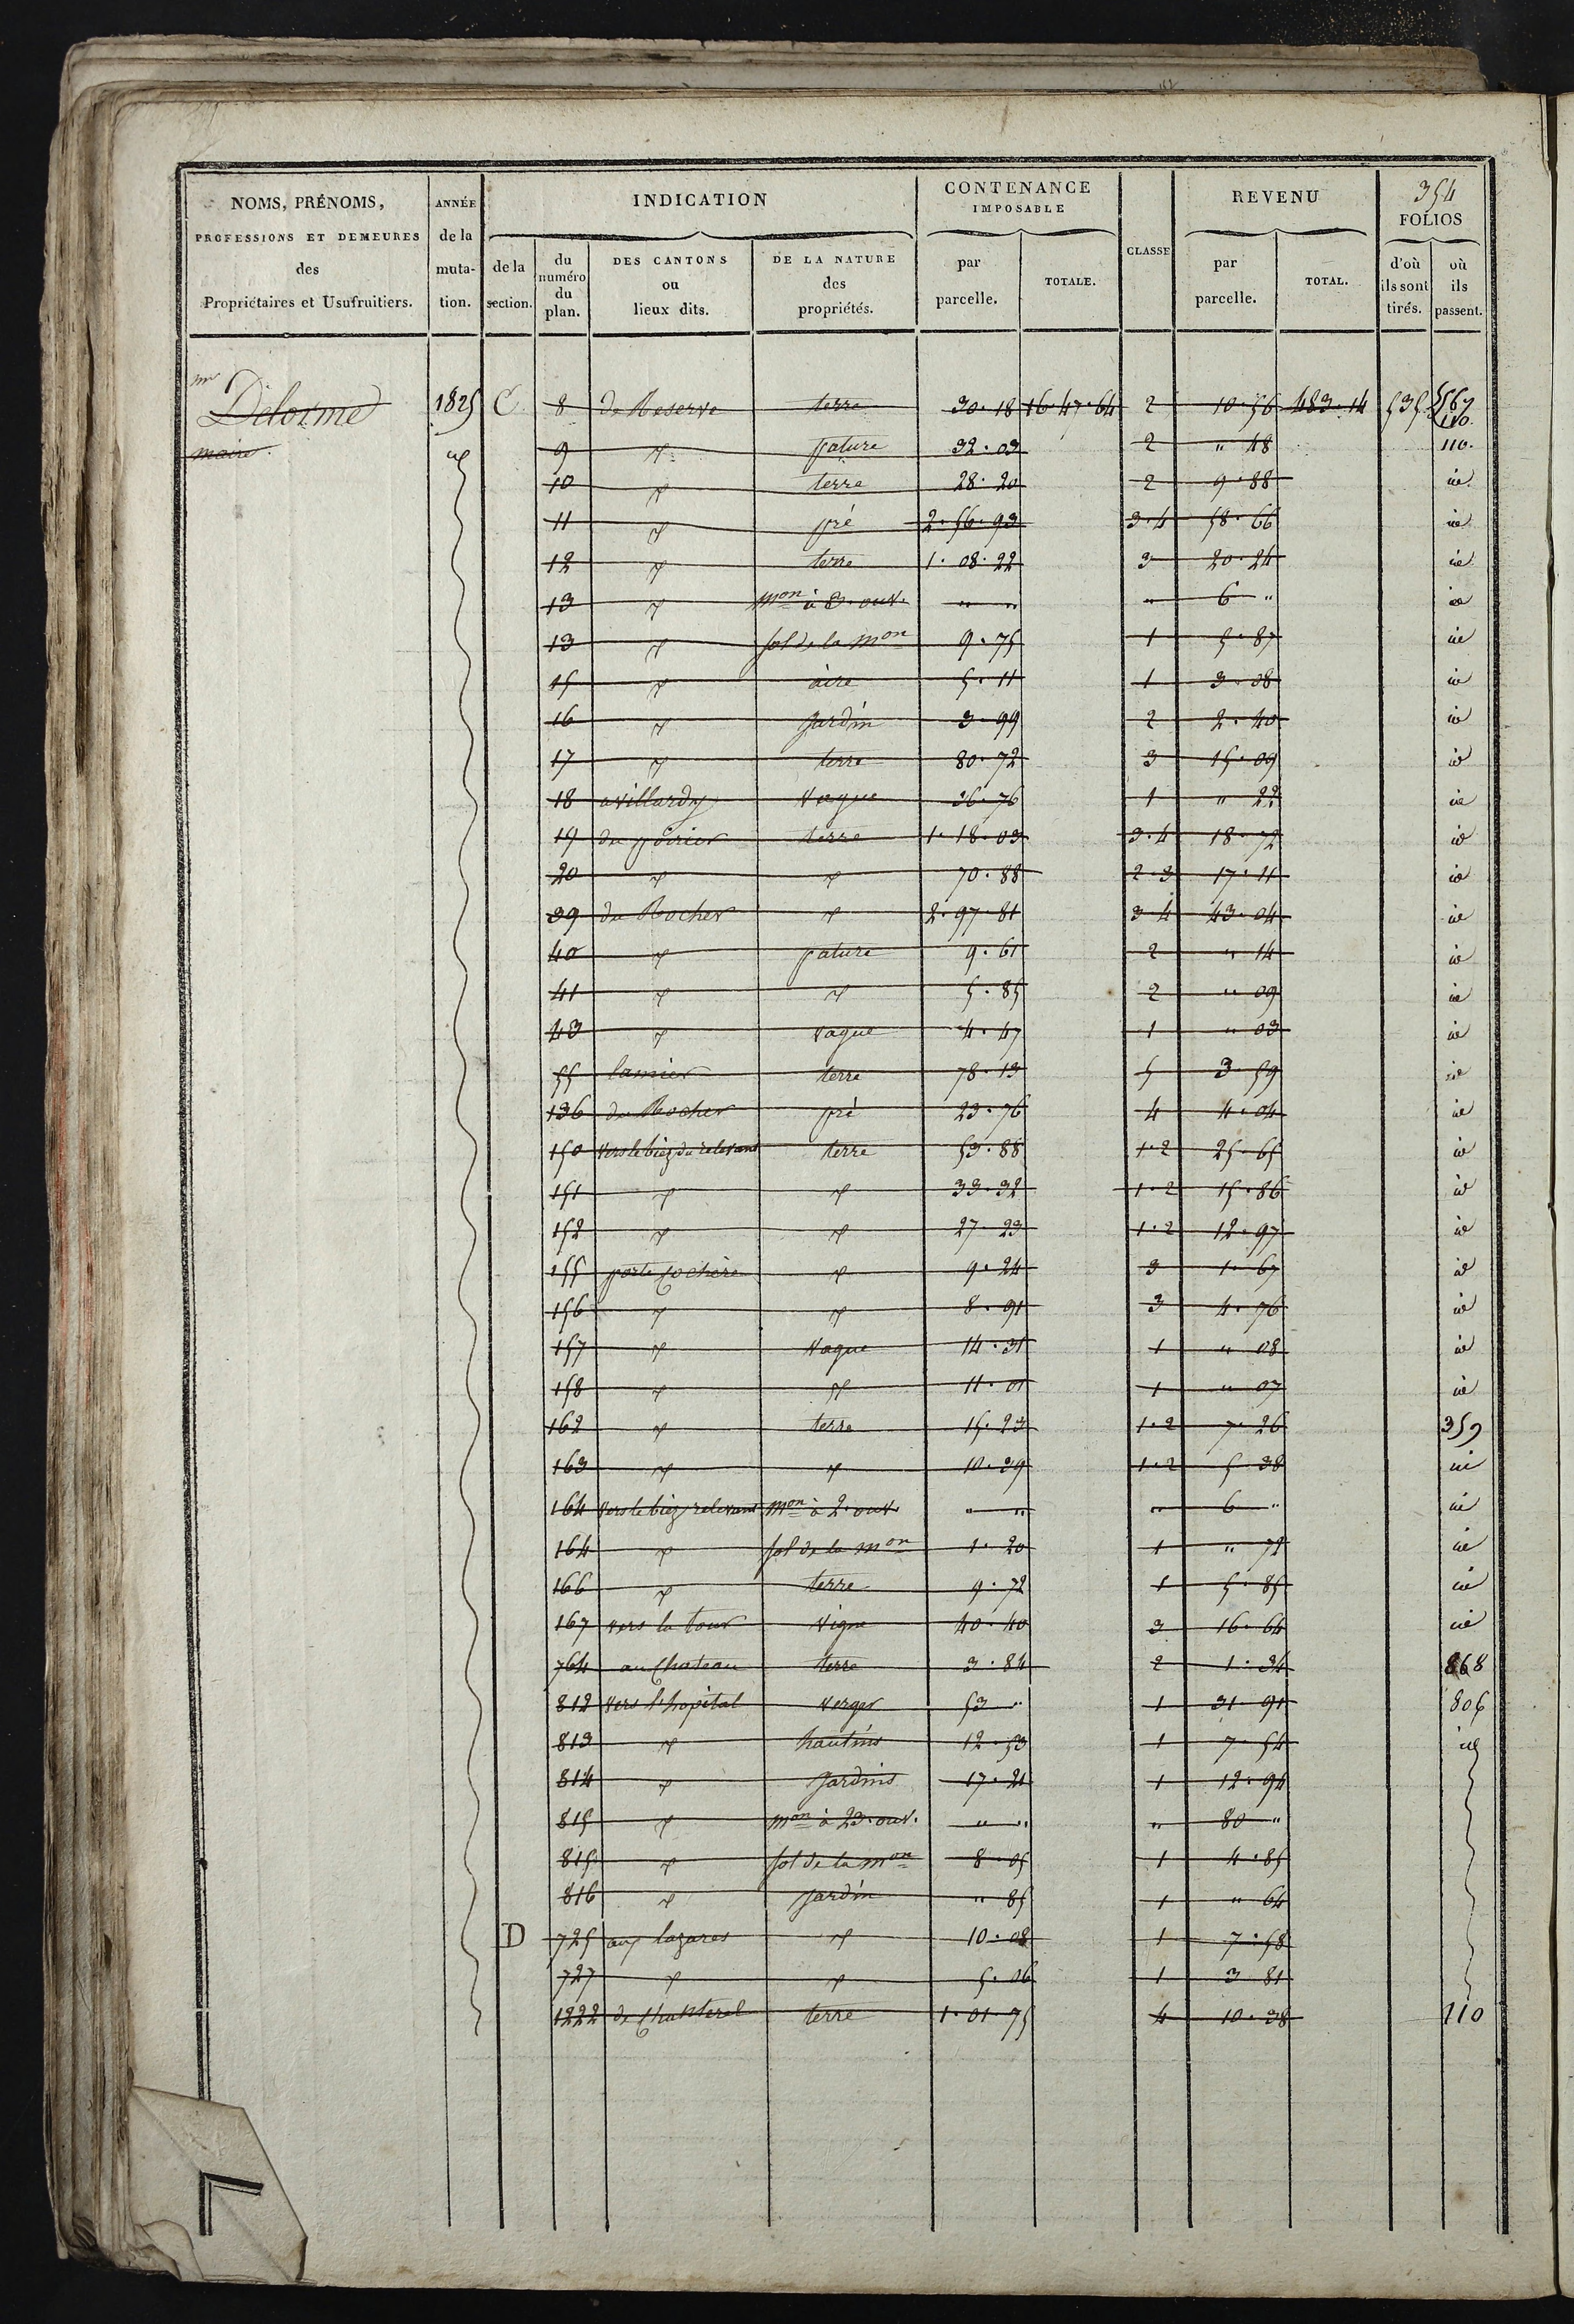 354
NOMS, PRÉNOMS, PROFESSIONS ET DEMEURES des Propriétaires et Usufruitiers.
ANNÉE de la mutation.
INDICATION
de la section.
du numéro du plan.
DES CANTONS ou lieux dits.
DE LA NATURE des propriétés.
CONTENANCE IMPOSABLE
par parcelle.
TOTALE.
CLASSE
REVENU
par parcelle.
TOTAL.
FOLIOS
d'où ils sont tirés.
où ils passent.
mr Delorme 1825 C 8 de Reserve terre 30.18 16.47.64 2 10.56 483.14 535 110.
maire id 9 id pature 32.03 2 " 48 110.
10 id terre 28.20 2 9.88 id
11 id pré 2.56.93 3.4 58.66 id
12 id terre 1.08.22 3 20.24 id
13 id mon à 8. ouv. " " " 6 " id
13 id sol de la mon 9.75 1 5.87 id
15 id aire 5.11 1 3.08 id
16 id Jardin 3.99 2 2.40 id
17 id terre 80.72 3 15.09 id
18 vague 36.76 1 " 22 id
19 du poirier terre 1.18.03 3.4 18.72 id
20 id id 70.88 2.3 17.11 id
39 du Rocher id 2.97.81 3.4 43.04 id
40 id pature 9.61 2 " 14 id
41 id id 5.85 2 " 09 id
43 id vague 4.47 1 " 03 id
55 lamier terre 78.13 5 3.59 id
136 du Rocher pré 23.76 4 4.04 id
150 vers le biez du relevant terre 53.88 1.2 25.65 id
151 id id 33.32 1.2 15.86 id
152 id id 27.23 1.2 12.97 id
155 porte Cochère id 9.24 3 1.67 id
156 id id 8.91 3 4.76 id
157 id vague 14.31 1 " 08 id
158 id id 11.01 1 " 07 id
162 id terre 15.23 1.2 7.26 359
163 id id 10.29 1.2 5.38 id
164 vers le biez relevant mon à 2. ouv. " " " 6 " id
164 id sol de la mon 1.20 1 " 72 id
166 id terre 9.72 1 5.85 id
167 vers la tour vigne 40.40 3 16.64 id
764 au Chateau terre 3.84 2 1.34 868
812 vers l'hopital verger 53 " 1 31.91 806
813 id hautins 12.53 1 7.54 id
814 id Jardins 17.21 1 12.94
815 id mon à 23. ouv. " " " 80 "
815 id sol de la mon 8.05 1 4.85
816 id Jardin " 85 1 " 64
D 725 aux lazares id 10.08 1 7.58
727 id id 5.06 1 3.81
1222 de Chanterel terre 1.01.75 4 10.38 110